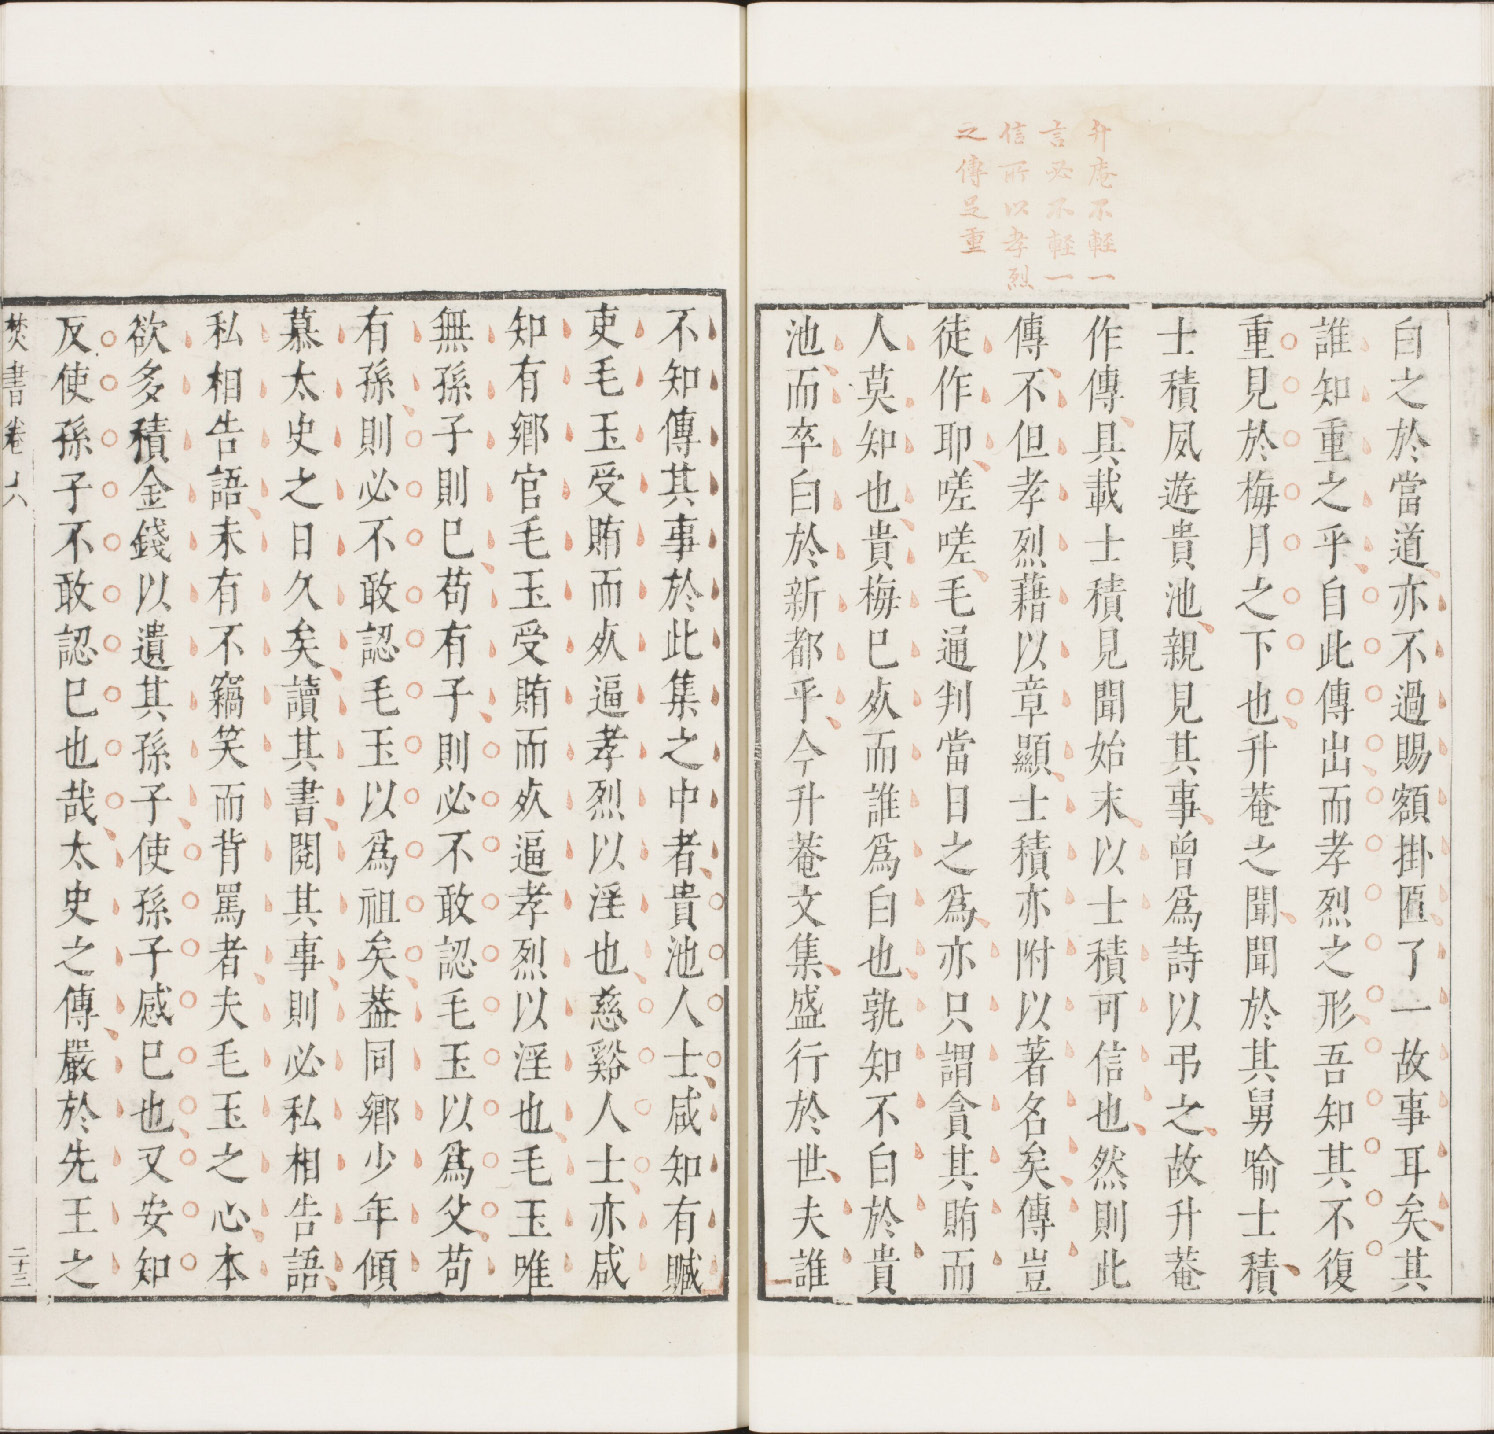 升庵不輕一
言必不輕一
信所以孝烈
之傳足重
白之於當道亦不過賜額掛匾了一故事耳矣其
誰知重之乎自此傳出而孝烈之形吾知其不復
重見於梅月之下也升菴之聞聞於其舅喻士積
士積夙遊貴池親見其事曾爲詩以弔之故升菴
作傳具載士積見聞始末以士積可信也然則此
傳不但孝烈藉以章顯士積亦附以著名矣傳豈
徒作耶嗟嗟毛通判當日之爲亦只謂貪其賄而
人莫知也貴梅已歿而誰爲白也孰知不白於貴
池而卒白於新都乎今升菴文集盛行於世夫誰
不知傳其事於此集之中者貴池人士咸知有贓
吏毛玉受賄而歿逼孝烈以淫也慈谿人士亦咸
知有鄉官毛玉受賄而歿逼孝烈以淫也毛玉唯
無孫子則已苟有子則必不敢認毛玉以爲父苟
有孫則必不敢認毛玉以爲祖矣葢同鄉少年傾
慕太史之日久矣讀其書閱其事則必私相告語
私相告語未有不竊笑而背罵者夫毛玉之心本
欲多積金錢以遺其孫子使孫子感已也又安知
反使孫子不敢認已也哉太史之傳嚴於先王之
焚書卷六
二十三